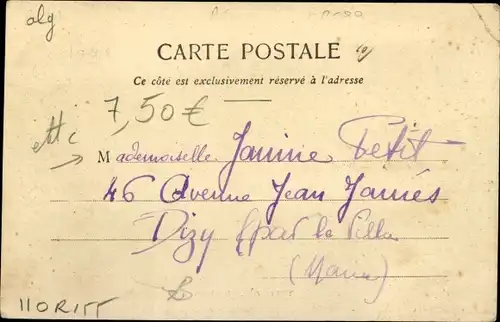 alg
CARTE POSTALE
Ce côté est exclusivement réservé à l'adresse
7,50 €
Mademoiselle Janine Petit
46 Avenue Jean Jaurès
Dizy (par la Villa
(Marne)
110RITT